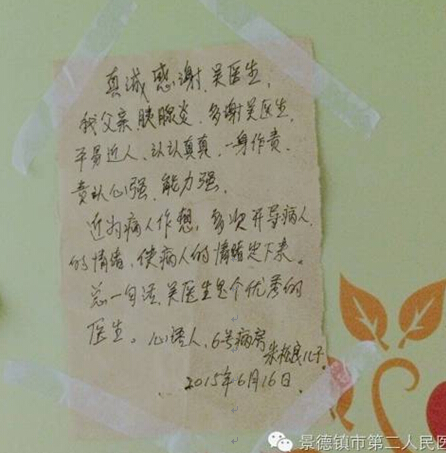 真诚感谢吴医生,
我父亲胰腺炎,多谢吴医生
平易近人、认认真真、一身作责
责认心强、能力强,
为病人作想,多次开导病人
的情绪,使病人的情绪定下来。
总一句话,吴医生是个优秀的
医生。心语人,6号病房
儿子
2015年6月16日.
景德镇市第二人民医